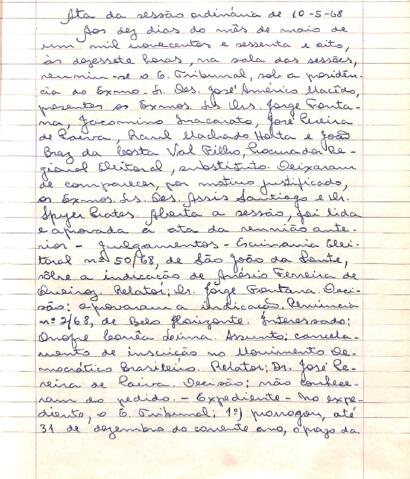 Ata da sessão ordinária de 10-5-68
Aos dez dias do mês de maio de
um mil novecentos e sessenta e oito,
às dezessete horas, na sala das sessões,
reuniu-se o E. Tribunal, sob a presidên-
cia do Exmo. Sr. Des. José Américo Macêdo,
presentes os Exmos. Srs. Drs. Jorge Fonta-
na, Jacomino Inacarato, José Pereira
de Paiva, Raul Machado Horta e João
Braz da Costa Val Filho, Procurador Re-
gional Eleitoral, substituto. Deixaram
de comparecer, por motivo justificado,
os Exmos. Srs. Des. Assis Santiago e Dr.
Spyer Prates. Aberta a sessão, foi lida
e aprovada a ata da reunião ante-
rior - Julgamentos - Escrivania Elei-
toral nº 50/68, de São João da Ponte,
sôbre a indicação de Ferreira de
Queiroz. Relator: Dr. Jorge Fontana. Deci-
são: aprovaram a indicação. Renúncia
nº 2/68, de Belo Horizonte. Interessado:
Onofre Corrêa Lima. Assunto: cancela-
mento de inscrição no Movimento De-
mocrático Brasileiro. Relator: Dr. José Pe-
reira de Paiva. Decisão: não conhece-
ram do pedido. - Expediente - No expe-
diente, o E. Tribunal: 1º) prorrogou, até
31 de dezembro do corrente ano, o prazo da